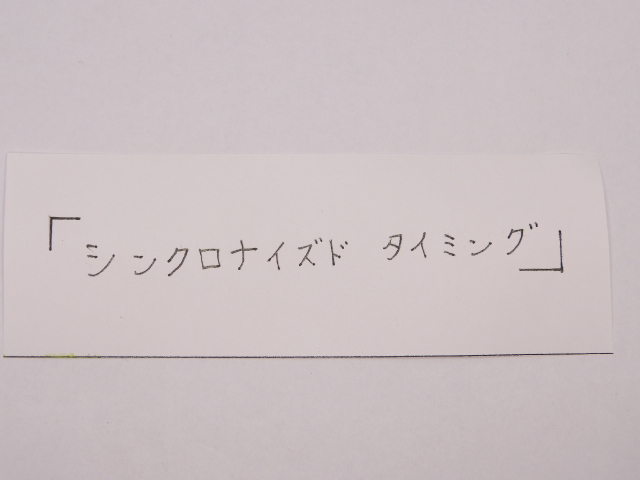 「シンクロナイズド タイミング」